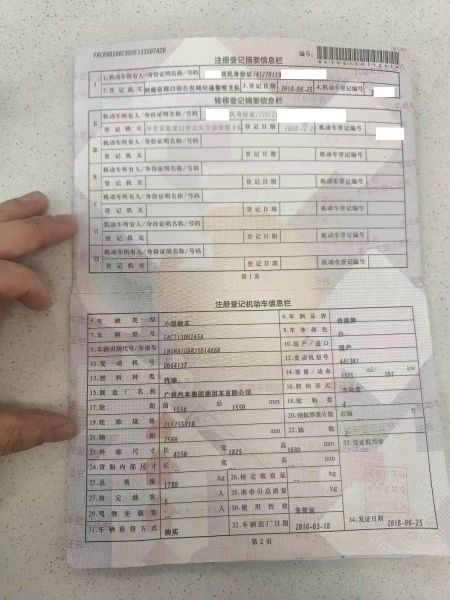 注册登记摘要信息栏
编号:
I 1.机动车所有人/身份证明名称/号码 居民身份证/41270119
2.登记机关 河南省周口市公安交通警察支队 3.登记日期 2018-06-25 4.机动车登记编号
转移登记摘要信息栏
II 机动车所有人/身份证明名称/号码
登记机关 登记日期 机动车登记编号
III 机动车所有人/身份证明名称/号码
登记机关 登记日期 机动车登记编号
IV 机动车所有人/身份证明名称/号码
登记机关 登记日期 机动车登记编号
V 机动车所有人/身份证明名称/号码
登记机关 登记日期 机动车登记编号
VI 机动车所有人/身份证明名称/号码
登记机关 登记日期 机动车登记编号
VII 机动车所有人/身份证明名称/号码
登记机关 登记日期 机动车登记编号
第1页
注册登记机动车信息栏
5.车辆类型 小型轿车 6.车辆品牌 传祺牌
7.车辆型号 8.车身颜色 白
9.车辆识别代号/车架号 10.国产/进口 国产
11.发动机号 12.发动机型号 4A13M1
13.燃料种类 汽油 14.排量/功率 ml/ kw
15.制造厂名称 广州汽车集团乘用车有限公司 16.转向形式
17.轮距 前 1554 后 1550 mm 18.轮胎数 4
19.轮胎规格 215/55R18 20.钢板弹簧片数 后轴 片
21.轴距 2560 mm 22.轴数 2
23.外廓尺寸 长 4350 宽 1825 高 mm 33.发证机关章
24.货厢内部尺寸 长 宽 高 mm
25.总质量 1780 kg 26.核定载质量 kg
27.核定载客 5 人 28.准牵引总质量 kg
29.驾驶室载客 人 30.使用性质 非营运
31.车辆获得方式 购买 32.车辆出厂日期 2018-03-18 34.发证日期 2018-06-25
第2页